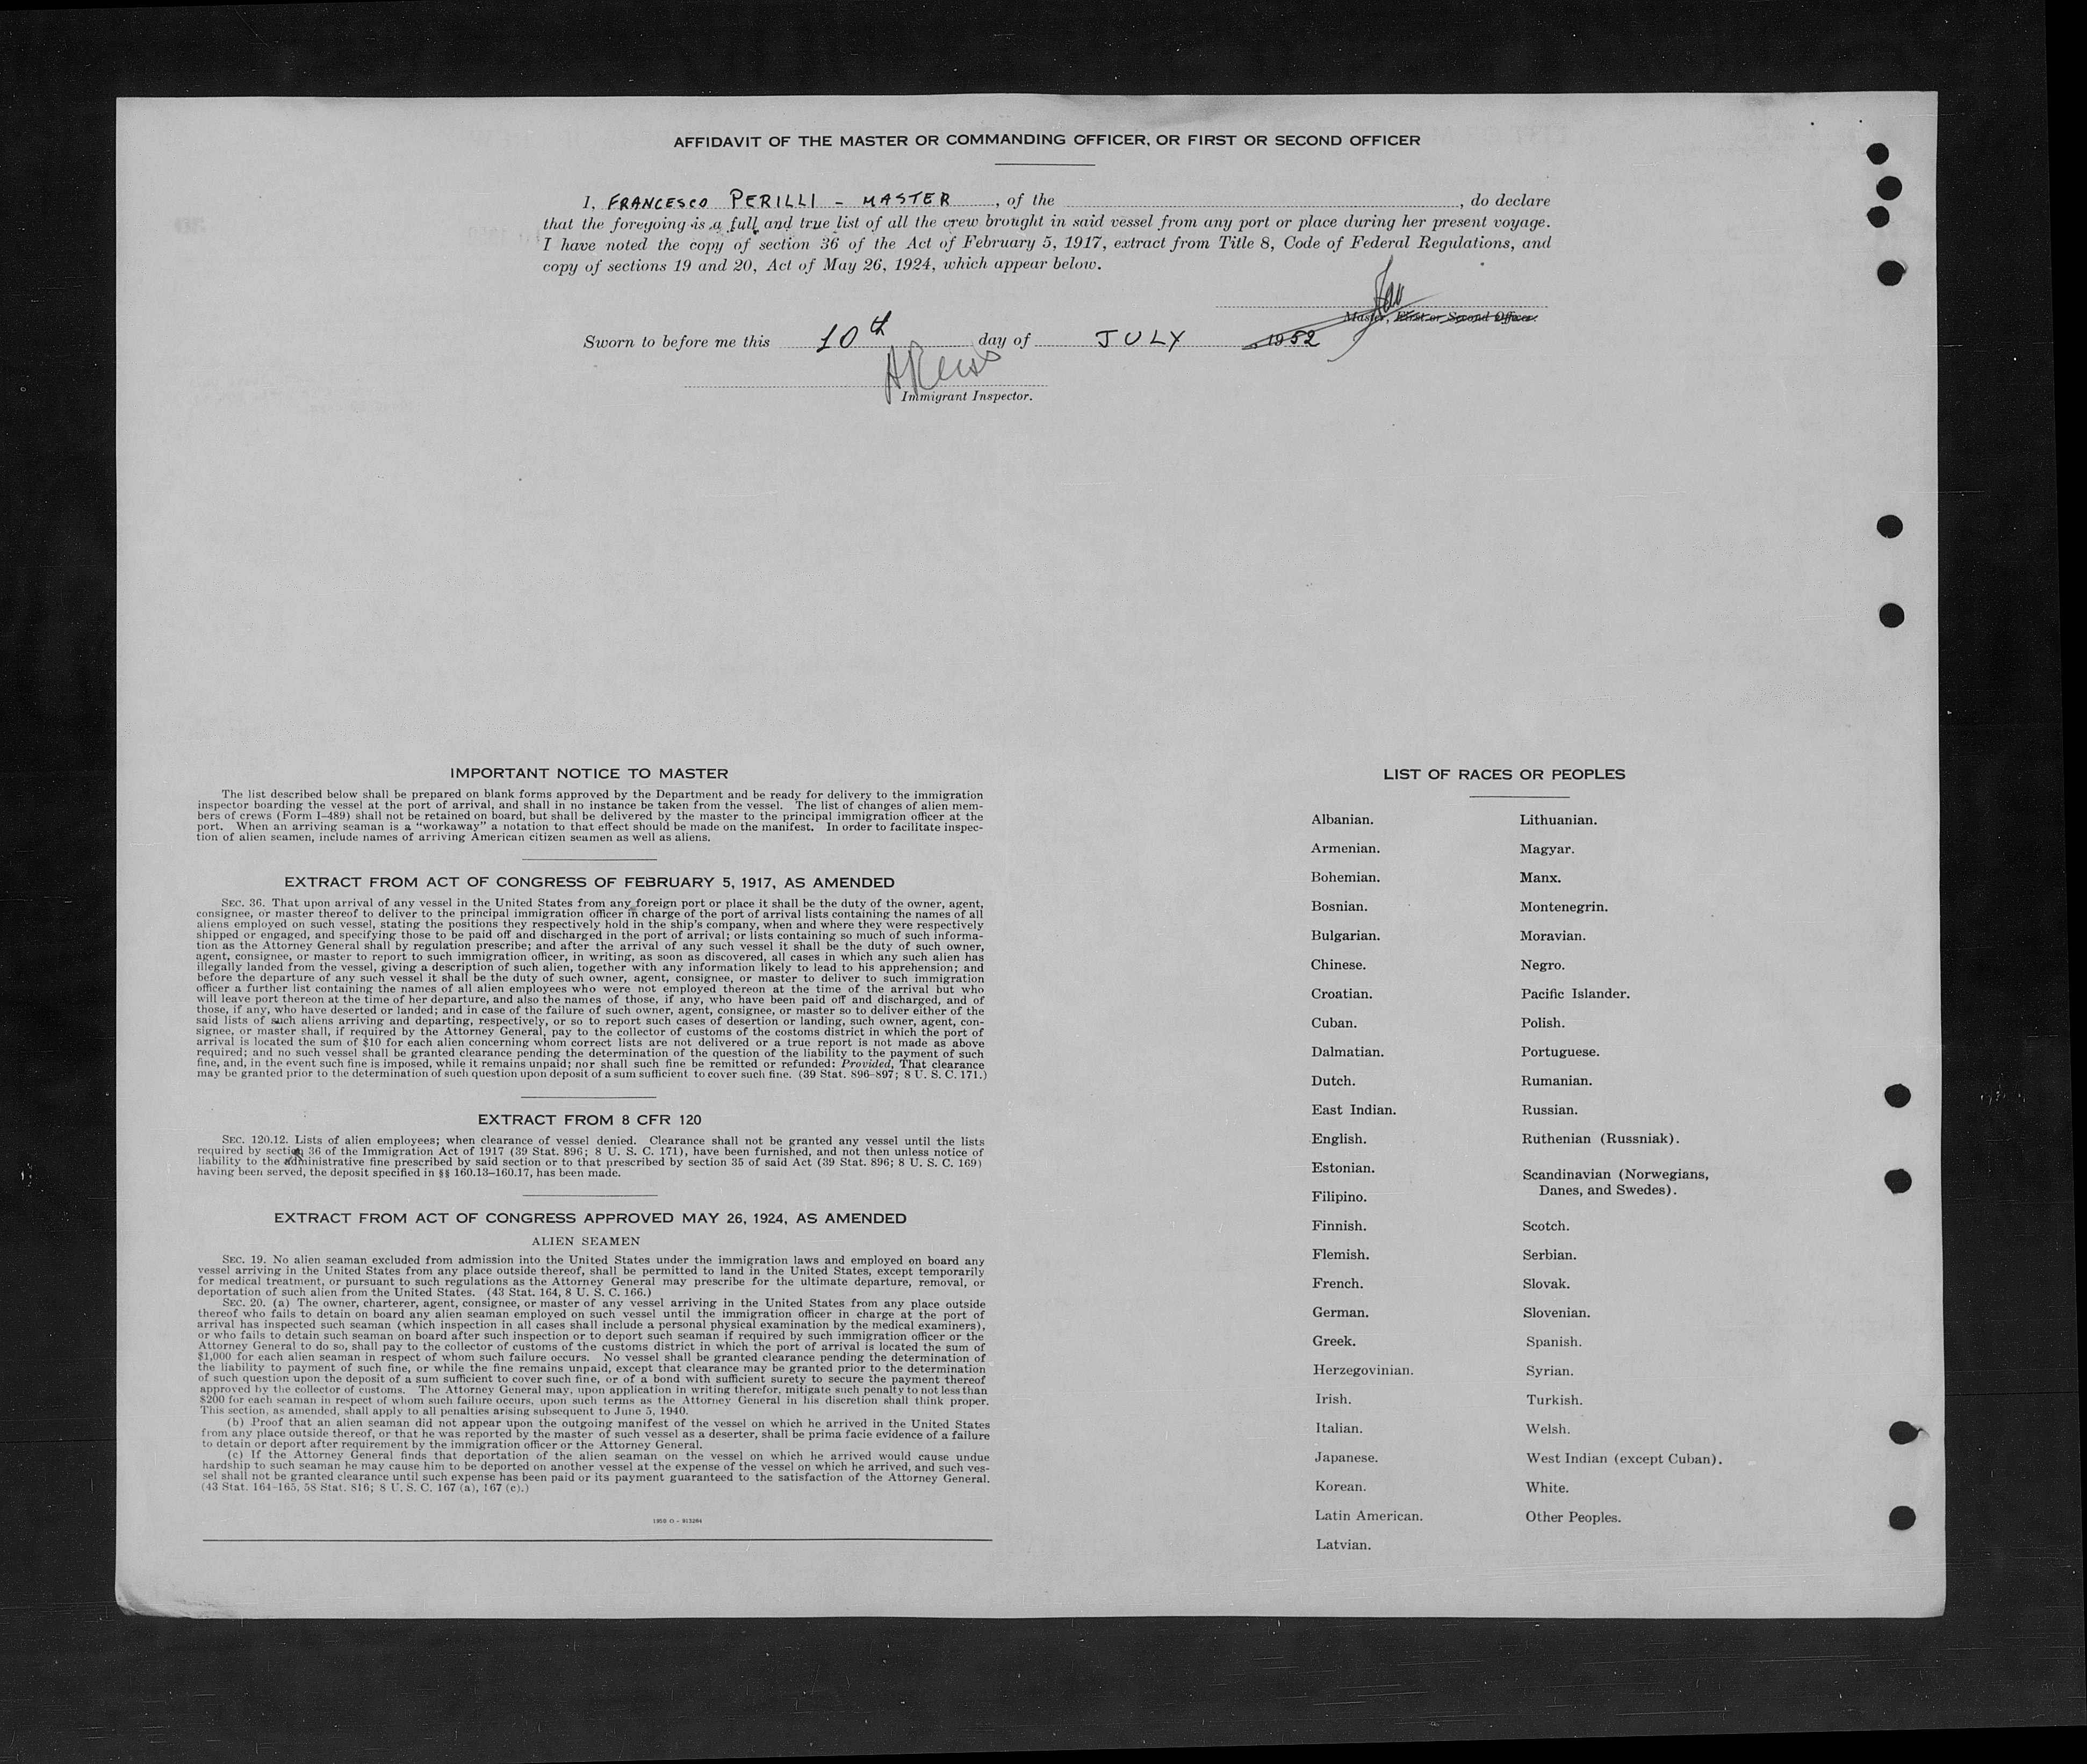 AFFIDAVIT OF THE MASTER OR COMMANDING OFFICER, OR FIRST OR SECOND OFFICER
I, FRANCESCO PERILLI - MASTER, of the , do declare
that the foregoing is a full and true list of all the crew brought in said vessel from any port or place during her present voyage.
I have noted the copy of section 36 of the Act of February 5, 1917, extract from Title 8, Code of Federal Regulations, and
copy of sections 19 and 20, Act of May 26, 1924, which appear below.
Master, First or Second Officer.
Sworn to before me this 10th day of JULY 1952
Immigrant Inspector.
IMPORTANT NOTICE TO MASTER
The list described below shall be prepared on blank forms approved by the Department and be ready for delivery to the immigration
inspector boarding the vessel at the port of arrival, and shall in no instance be taken from the vessel. The list of changes of alien mem-
bers of crews (Form I-489) shall not be retained on board, but shall be delivered by the master to the principal immigration officer at the
port. When an arriving seaman is a "workaway" a notation to that effect should be made on the manifest. In order to facilitate inspec-
tion of alien seamen, include names of arriving American citizen seamen as well as aliens.
EXTRACT FROM ACT OF CONGRESS OF FEBRUARY 5, 1917, AS AMENDED
SEC. 36. That upon arrival of any vessel in the United States from any foreign port or place it shall be the duty of the owner, agent,
consignee, or master thereof to deliver to the principal immigration officer in charge of the port of arrival lists containing the names of all
aliens employed on such vessel, stating the positions they respectively hold in the ship's company, when and where they were respectively
shipped or engaged, and specifying those to be paid off and discharged in the port of arrival; or lists containing so much of such informa-
tion as the Attorney General shall by regulation prescribe; and after the arrival of any such vessel it shall be the duty of such owner,
agent, consignee, or master to report to such immigration officer, in writing, as soon as discovered, all cases in which any such alien has
illegally landed from the vessel, giving a description of such alien, together with any information likely to lead to his apprehension; and
before the departure of any such vessel it shall be the duty of such owner, agent, consignee, or master to deliver to such immigration
officer a further list containing the names of all alien employees who were not employed thereon at the time of the arrival but who
will leave port thereon at the time of her departure, and also the names of those, if any, who have been paid off and discharged, and of
those, if any, who have deserted or landed; and in case of the failure of such owner, agent, consignee, or master so to deliver either of the
said lists of such aliens arriving and departing, respectively, or so to report such cases of desertion or landing, such owner, agent, con-
signee, or master shall, if required by the Attorney General, pay to the collector of customs of the costoms district in which the port of
arrival is located the sum of $10 for each alien concerning whom correct lists are not delivered or a true report is not made as above
required; and no such vessel shall be granted clearance pending the determination of the question of the liability to the payment of such
fine, and, in the event such fine is imposed, while it remains unpaid; nor shall such fine be remitted or refunded: Provided, That clearance
may be granted prior to the determination of such question upon deposit of a sum sufficient to cover such fine. (39 Stat. 896-897; 8 U. S. C. 171.)
EXTRACT FROM 8 CFR 120
SEC. 120.12. Lists of alien employees; when clearance of vessel denied. Clearance shall not be granted any vessel until the lists
required by section 36 of the Immigration Act of 1917 (39 Stat. 896; 8 U. S. C. 171), have been furnished, and not then unless notice of
liability to the administrative fine prescribed by said section or to that prescribed by section 35 of said Act (39 Stat. 896; 8 U. S. C. 169)
having been served, the deposit specified in §§ 160.13-160.17, has been made.
EXTRACT FROM ACT OF CONGRESS APPROVED MAY 26, 1924, AS AMENDED
ALIEN SEAMEN
SEC. 19. No alien seaman excluded from admission into the United States under the immigration laws and employed on board any
vessel arriving in the United States from any place outside thereof, shall be permitted to land in the United States, except temporarily
for medical treatment, or pursuant to such regulations as the Attorney General may prescribe for the ultimate departure, removal, or
deportation of such alien from the United States. (43 Stat. 164, 8 U. S. C. 166.)
SEC. 20. (a) The owner, charterer, agent, consignee, or master of any vessel arriving in the United States from any place outside
thereof who fails to detain on board any alien seaman employed on such vessel until the immigration officer in charge at the port of
arrival has inspected such seaman (which inspection in all cases shall include a personal physical examination by the medical examiners),
or who fails to detain such seaman on board after such inspection or to deport such seaman if required by such immigration officer or the
Attorney General to do so, shall pay to the collector of customs of the customs district in which the port of arrival is located the sum of
$1,000 for each alien seaman in respect of whom such failure occurs. No vessel shall be granted clearance pending the determination of
the liability to payment of such fine, or while the fine remains unpaid, except that clearance may be granted prior to the determination
of such question upon the deposit of a sum sufficient to cover such fine, or of a bond with sufficient surety to secure the payment thereof
approved by the collector of customs. The Attorney General may, upon application in writing therefor, mitigate such penalty to not less than
$200 for each seaman in respect of whom such failure occurs, upon such terms as the Attorney General in his discretion shall think proper.
This section, as amended, shall apply to all penalties arising subsequent to June 5, 1940.
(b) Proof that an alien seaman did not appear upon the outgoing manifest of the vessel on which he arrived in the United States
from any place outside thereof, or that he was reported by the master of such vessel as a deserter, shall be prima facie evidence of a failure
to detain or deport after requirement by the immigration officer or the Attorney General.
(c) If the Attorney General finds that deportation of the alien seaman on the vessel on which he arrived would cause undue
hardship to such seaman he may cause him to be deported on another vessel at the expense of the vessel on which he arrived, and such ves-
sel shall not be granted clearance until such expense has been paid or its payment guaranteed to the satisfaction of the Attorney General.
(43 Stat. 164-165, 58 Stat. 816; 8 U. S. C. 167 (a), 167 (c).)
LIST OF RACES OR PEOPLES
Albanian.
Armenian.
Bohemian.
Bosnian.
Bulgarian.
Chinese.
Croatian.
Cuban.
Dalmatian.
Dutch.
East Indian.
English.
Estonian.
Filipino.
Finnish.
Flemish.
French.
German.
Greek.
Herzegovinian.
Irish.
Italian.
Japanese.
Korean.
Latin American.
Latvian.
Lithuanian.
Magyar.
Manx.
Montenegrin.
Moravian.
Negro.
Pacific Islander.
Polish.
Portuguese.
Rumanian.
Russian.
Ruthenian (Russniak).
Scandinavian (Norwegians,
Danes, and Swedes).
Scotch.
Serbian.
Slovak.
Slovenian.
Spanish.
Syrian.
Turkish.
Welsh.
West Indian (except Cuban).
White.
Other Peoples.